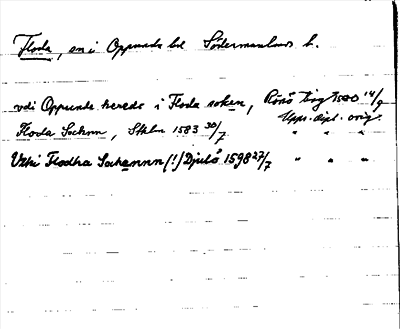 Floda, sn i Oppunda hd Södermanlands l.
vdi Oppunde herede i Floda soken, Rönö 1580 14/9
Upps. dipl. orig.
Floda Socknn, Sthlm 1583 30/7 " " "
Vthi Flodha Sochannn (!) Djulö 1598 27/7 " " "